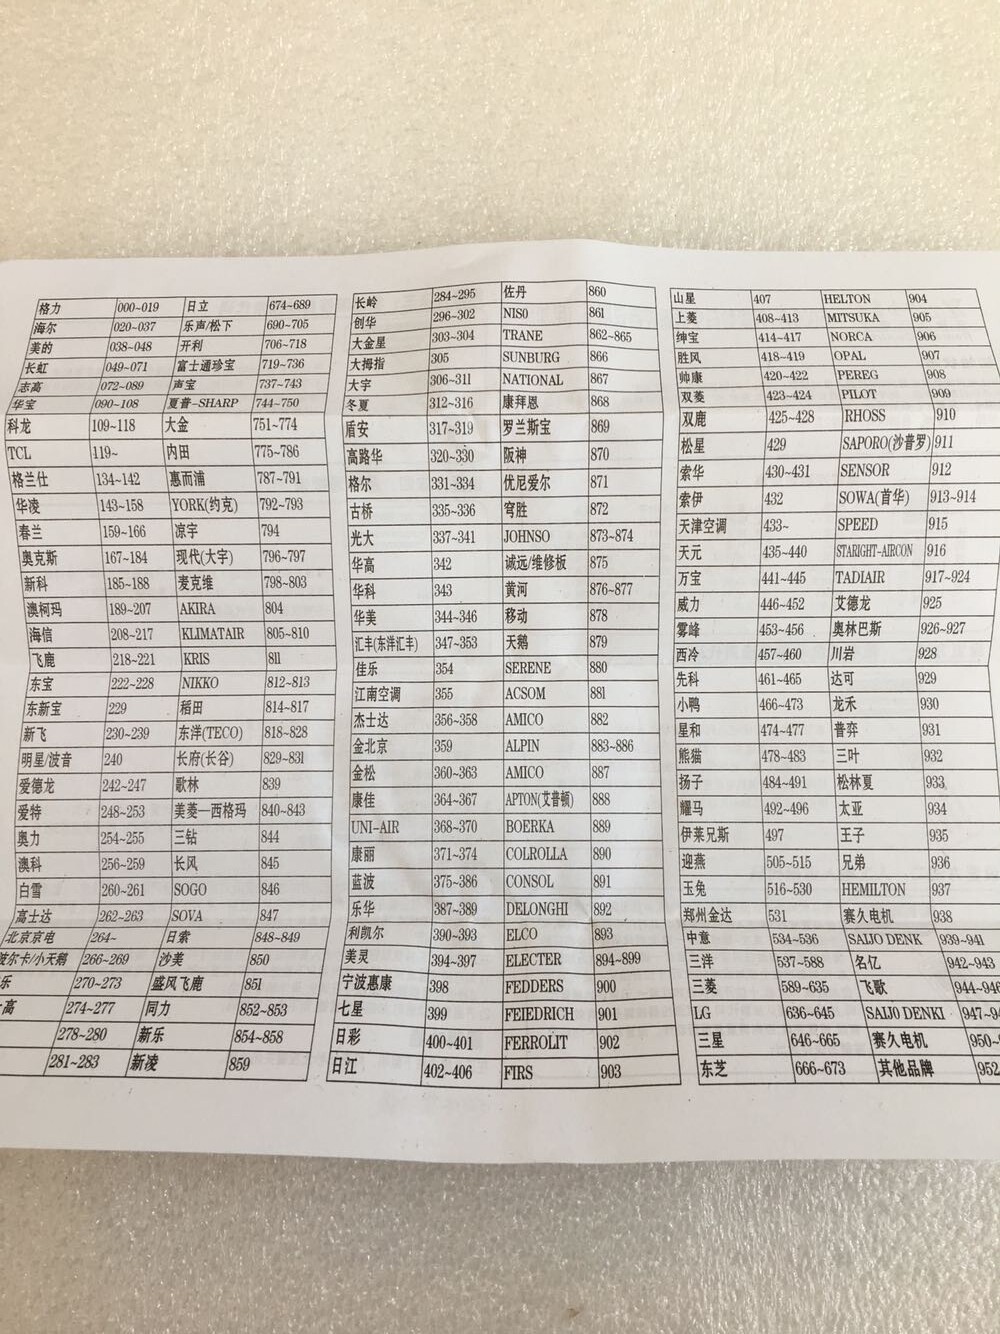 格力 000~019 日立 674~689
海尔 020~037 乐声/松下 690~705
美的 038~048 开利 706~718
长虹 049~071 富士通珍宝 719~736
志高 072~089 声宝 737~743
华宝 090~108 夏普-SHARP 744~750
科龙 109~118 大金 751~774
TCL 119~ 内田 775~786
格兰仕 134~142 惠而浦 787~791
华凌 143~158 YORK(约克) 792~793
春兰 159~166 凉宇 794
奥克斯 167~184 现代(大宇) 796~797
新科 185~188 麦克维 798~803
澳柯玛 189~207 AKIRA 804
海信 208~217 KLIMATAIR 805~810
飞鹿 218~221 KRIS 811
东宝 222~228 NIKKO 812~813
东新宝 229 稻田 814~817
新飞 230~239 东洋(TECO) 818~828
明星/波音 240 长府(长谷) 829~831
爱德龙 242~247 歌林 839
爱特 248~253 美菱—西格玛 840~843
奥力 254~255 三钻 844
澳科 256~259 长风 845
白雪 260~261 SOGO 846
高士达 262~263 SOVA 847
北京京电 264~ 日索 848~849
尔卡/小天鹅 266~269 沙美 850
乐 270~273 盛风飞鹿 851
高 274~277 同力 852~853
278~280 新乐 854~858
281~283 新凌 859
长岭 284~295 佐丹 860
创华 296~302 NISO 861
大金星 303~304 TRANE 862~865
大拇指 305 SUNBURG 866
大宇 306~311 NATIONAL 867
冬夏 312~316 康拜恩 868
盾安 317~319 罗兰斯宝 869
高路华 320~330 阪神 870
格尔 331~334 优尼爱尔 871
古桥 335~336 穹胜 872
光大 337~341 JOHNSO 873~874
华高 342 诚远/维修板 875
华科 343 黄河 876~877
华美 344~346 移动 878
汇丰(东洋汇丰) 347~353 天鹅 879
佳乐 354 SERENE 880
江南空调 355 ACSOM 881
杰士达 356~358 AMICO 882
金北京 359 ALPIN 883~886
金松 360~363 AMICO 887
康佳 364~367 APTON(艾普顿) 888
UNI-AIR 368~370 BOERKA 889
康丽 371~374 COLROLLA 890
蓝波 375~386 CONSOL 891
乐华 387~389 DELONGHI 892
利凯尔 390~393 ELCO 893
美灵 394~397 ELECTER 894~899
宁波惠康 398 FEDDERS 900
七星 399 FEIEDRICH 901
日彩 400~401 FERROLIT 902
日江 402~406 FIRS 903
山星 407 HELTON 904
上菱 408~413 MITSUKA 905
绅宝 414~417 NORCA 906
胜风 418~419 OPAL 907
帅康 420~422 PEREG 908
双菱 423~424 PILOT 909
双鹿 425~428 RHOSS 910
松星 429 SAPORO(沙普罗) 911
索华 430~431 SENSOR 912
索伊 432 SOWA(首华) 913~914
天津空调 433~ SPEED 915
天元 435~440 STARIGHT-AIRCON 916
万宝 441~445 TADIAIR 917~924
威力 446~452 艾德龙 925
雾峰 453~456 奥林巴斯 926~927
西冷 457~460 川岩 928
先科 461~465 达可 929
小鸭 466~473 龙禾 930
星和 474~477 普弈 931
熊猫 478~483 三叶 932
扬子 484~491 松林夏 933
耀马 492~496 太亚 934
伊莱兄斯 497 王子 935
迎燕 505~515 兄弟 936
玉兔 516~530 HEMILTON 937
郑州金达 531 赛久电机 938
中意 534~536 SALJO DENK 939~941
三洋 537~588 名亿 942~943
三菱 589~635 飞歌 944~946
LG 636~645 SALJO DENKL 947~9
三星 646~665 赛久电机 950~
东芝 666~673 其他品牌 952